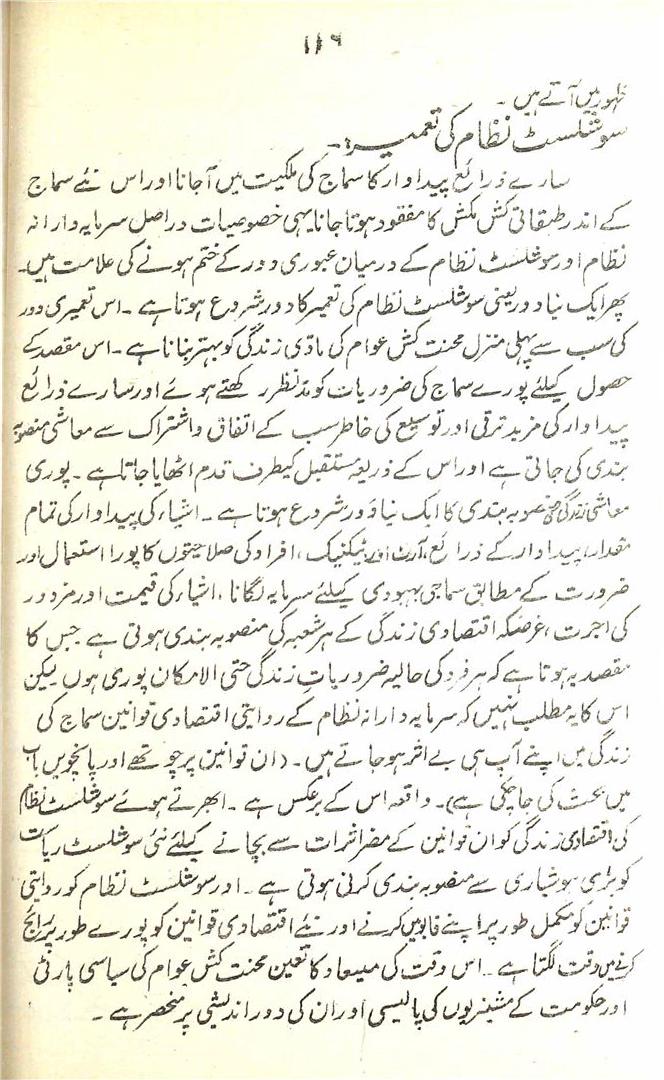 ۱۱۹
ظہور میں آتے ہیں ۔
سوشلسٹ نظام کی تعمیر :۔
سارے ذرائع پیداوار کا سماج کی ملکیت میں آجانا اور اس نئے سماج
کے اندر طبقاتی کش مکش کا مفقود ہوتا جانا یہی خصوصیات دراصل سرمایہ دارانہ
نظام اور سوشلسٹ نظام کے درمیان عبوری دور کے ختم ہونے کی علامت ہیں۔
پھر ایک نیا دور یعنی سوشلسٹ نظام کی تعمیر کا دور شروع ہوتا ہے ۔ اس تعمیری دور
کی سب سے پہلی منزل محنت کش عوام کی مادّی زندگی کو بہتر بنانا ہے ۔ اس مقصد کے
حصول کیلئے پورے سماج کی ضروریات کو مدّنظر رکھتے ہوئے اور سارے ذرائع
پیداوار کی مزید ترقی اور توسیع کی خاطر سب کے اتفاق و اشتراک سے معاشی منصوبہ
بندی کی جاتی ہے اور اس کے ذریعہ مستقبل کیطرف قدم اٹھایا جاتا ہے ۔ پوری
معاشی زندگی کی منصوبہ بندی کا ایک نیا دَور شروع ہوتا ہے ۔ اشیاء کی پیداوار کی تمام
مقدار، پیداوار کے ذرائع، آرٹ اور ٹیکنیک، افراد کی صلاحیتوں کا پورا استعمال اور
ضرورت کے مطابق سماجی بہبودی کیلئے سرمایہ لگانا ، اشیاء کی قیمت اور مزدور
کی اجرت ، غرضکہ اقتصادی زندگی کے ہر شعبہ کی منصوبہ بندی ہوتی ہے جس کا
مقصد یہ ہوتا ہے کہ ہر فرد کی حالیہ ضروریاتِ زندگی حتی الامکان پوری ہوں لیکن
اس کا یہ مطلب نہیں کہ سرمایہ دارانہ نظام کے روایتی اقتصادی قوانین سماج کی
زندگی میں اپنے آپ ہی بے اثر ہو جاتے ہیں ۔ (ان قوانین پر چوتھے اور پانچویں باب
میں بحث کی جا چکی ہے) ۔ واقعہ اس کے برعکس ہے ۔ ابھرتے ہوئے سوشلسٹ نظام
کی اقتصادی زندگی کو ان قوانین کے مضر اثرات سے بچانے کیلئے نئی سوشلسٹ ریاست
کو بڑی ہوشیاری سے منصوبہ بندی کرنی ہوتی ہے ۔ اور سوشلسٹ نظام کو روایتی
قوانین کو مکمل طور پر اپنے قابو میں کرنے اور نئے اقتصادی قوانین کو پورے طور پر رائج
کرنے میں وقت لگتا ہے ۔ اس وقت کی میعاد کا تعین محنت کش عوام کی سیاسی پارٹی
اور حکومت کے مشینریوں کی پالیسی اور ان کی دور اندیشی پر منحصر ہے ۔